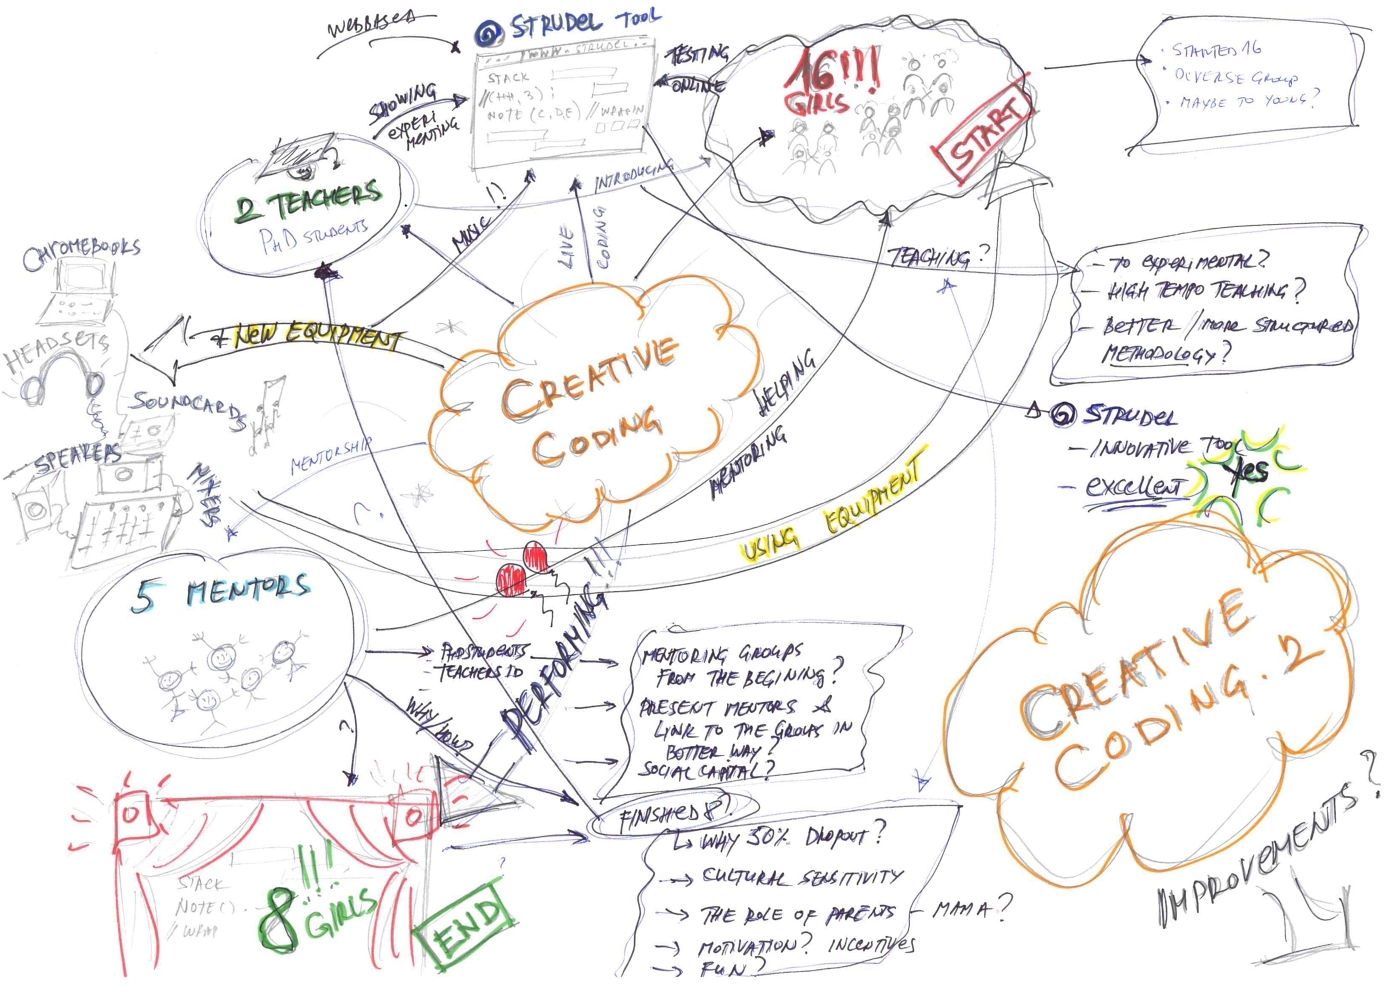 WEBBASED
STRUDEL TOOL
WWW. STRUDEL
STACK
NOTE (C, D, E) // WRAP IN
SHOWING
EXPERI
MENTING
TESTING
ONLINE
16!!!
GIRLS
START
• STARTED 16
• DIVERSE GROUP
• MAYBE TO YOUNG?
2 TEACHERS
PHD STUDENTS
MUSIC!!
LIVE
CODING
INTRODUCING
TEACHING?
- TO EXPERIMENTAL?
- HIGH TEMPO TEACHING?
- BETTER // MORE STRUCTURED
METHODOLOGY?
CHROMEBOOKS
HEADSETS
SOUNDCARDS
SPEAKERS
MIXERS
+ NEW EQUIPMENT
CREATIVE
CODING
HELPING
MENTORING
USING EQUIPMENT
MENTORSHIP
?
STRUDEL
- INNOVATIVE TOOL
- EXCELLENT
Yes
5 MENTORS
PERFORMING!!!
- PHD STUDENTS
- TEACHERS ID
MENTORING GROUPS
FROM THE BEGINING?
PRESENT MENTORS &
LINK TO THE GROUPS IN
BETTER WAY?
SOCIAL CAPITAL?
WHY/HOW?
?
CREATIVE
CODING. 2
IMPROVEMENTS?
FINISHED 8?
WHY 50% DROPOUT?
CULTURAL SENSITIVITY
THE ROLE OF PARENTS - MAMA?
MOTIVATION? INCENTIVES
FUN?
STACK
NOTE( ).
// WRAP
8!!!
GIRLS
END
?